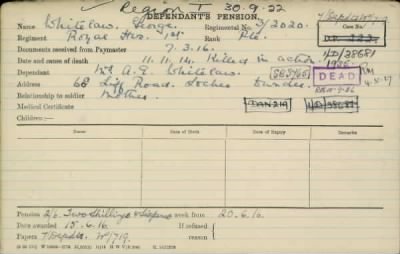 Region I 30.9.22
DEPENDANT'S PENSION.
Name Whitelaw, George. Regimental No. 3/2020.
Regiment Royal Hrs. 1st Rank Pte.
Documents received from Paymaster 7.3.16.
Date and cause of death 11.11.14. Killed in action.
4/D/38681
Dependant Mrs A. E. Whitelaw. DEAD
Address 68 Liff Road. Lochee Dundee.
Relationship to soldier Mother.
Medical Certificate DAN 219 4/D/38681
Children:—
Name Date of Birth Date of Expiry Remarks
Pension 2/6 Two Shillings & Sixpence week from 20.6.16.
Date awarded 15.6.16. If refused
Papers reason